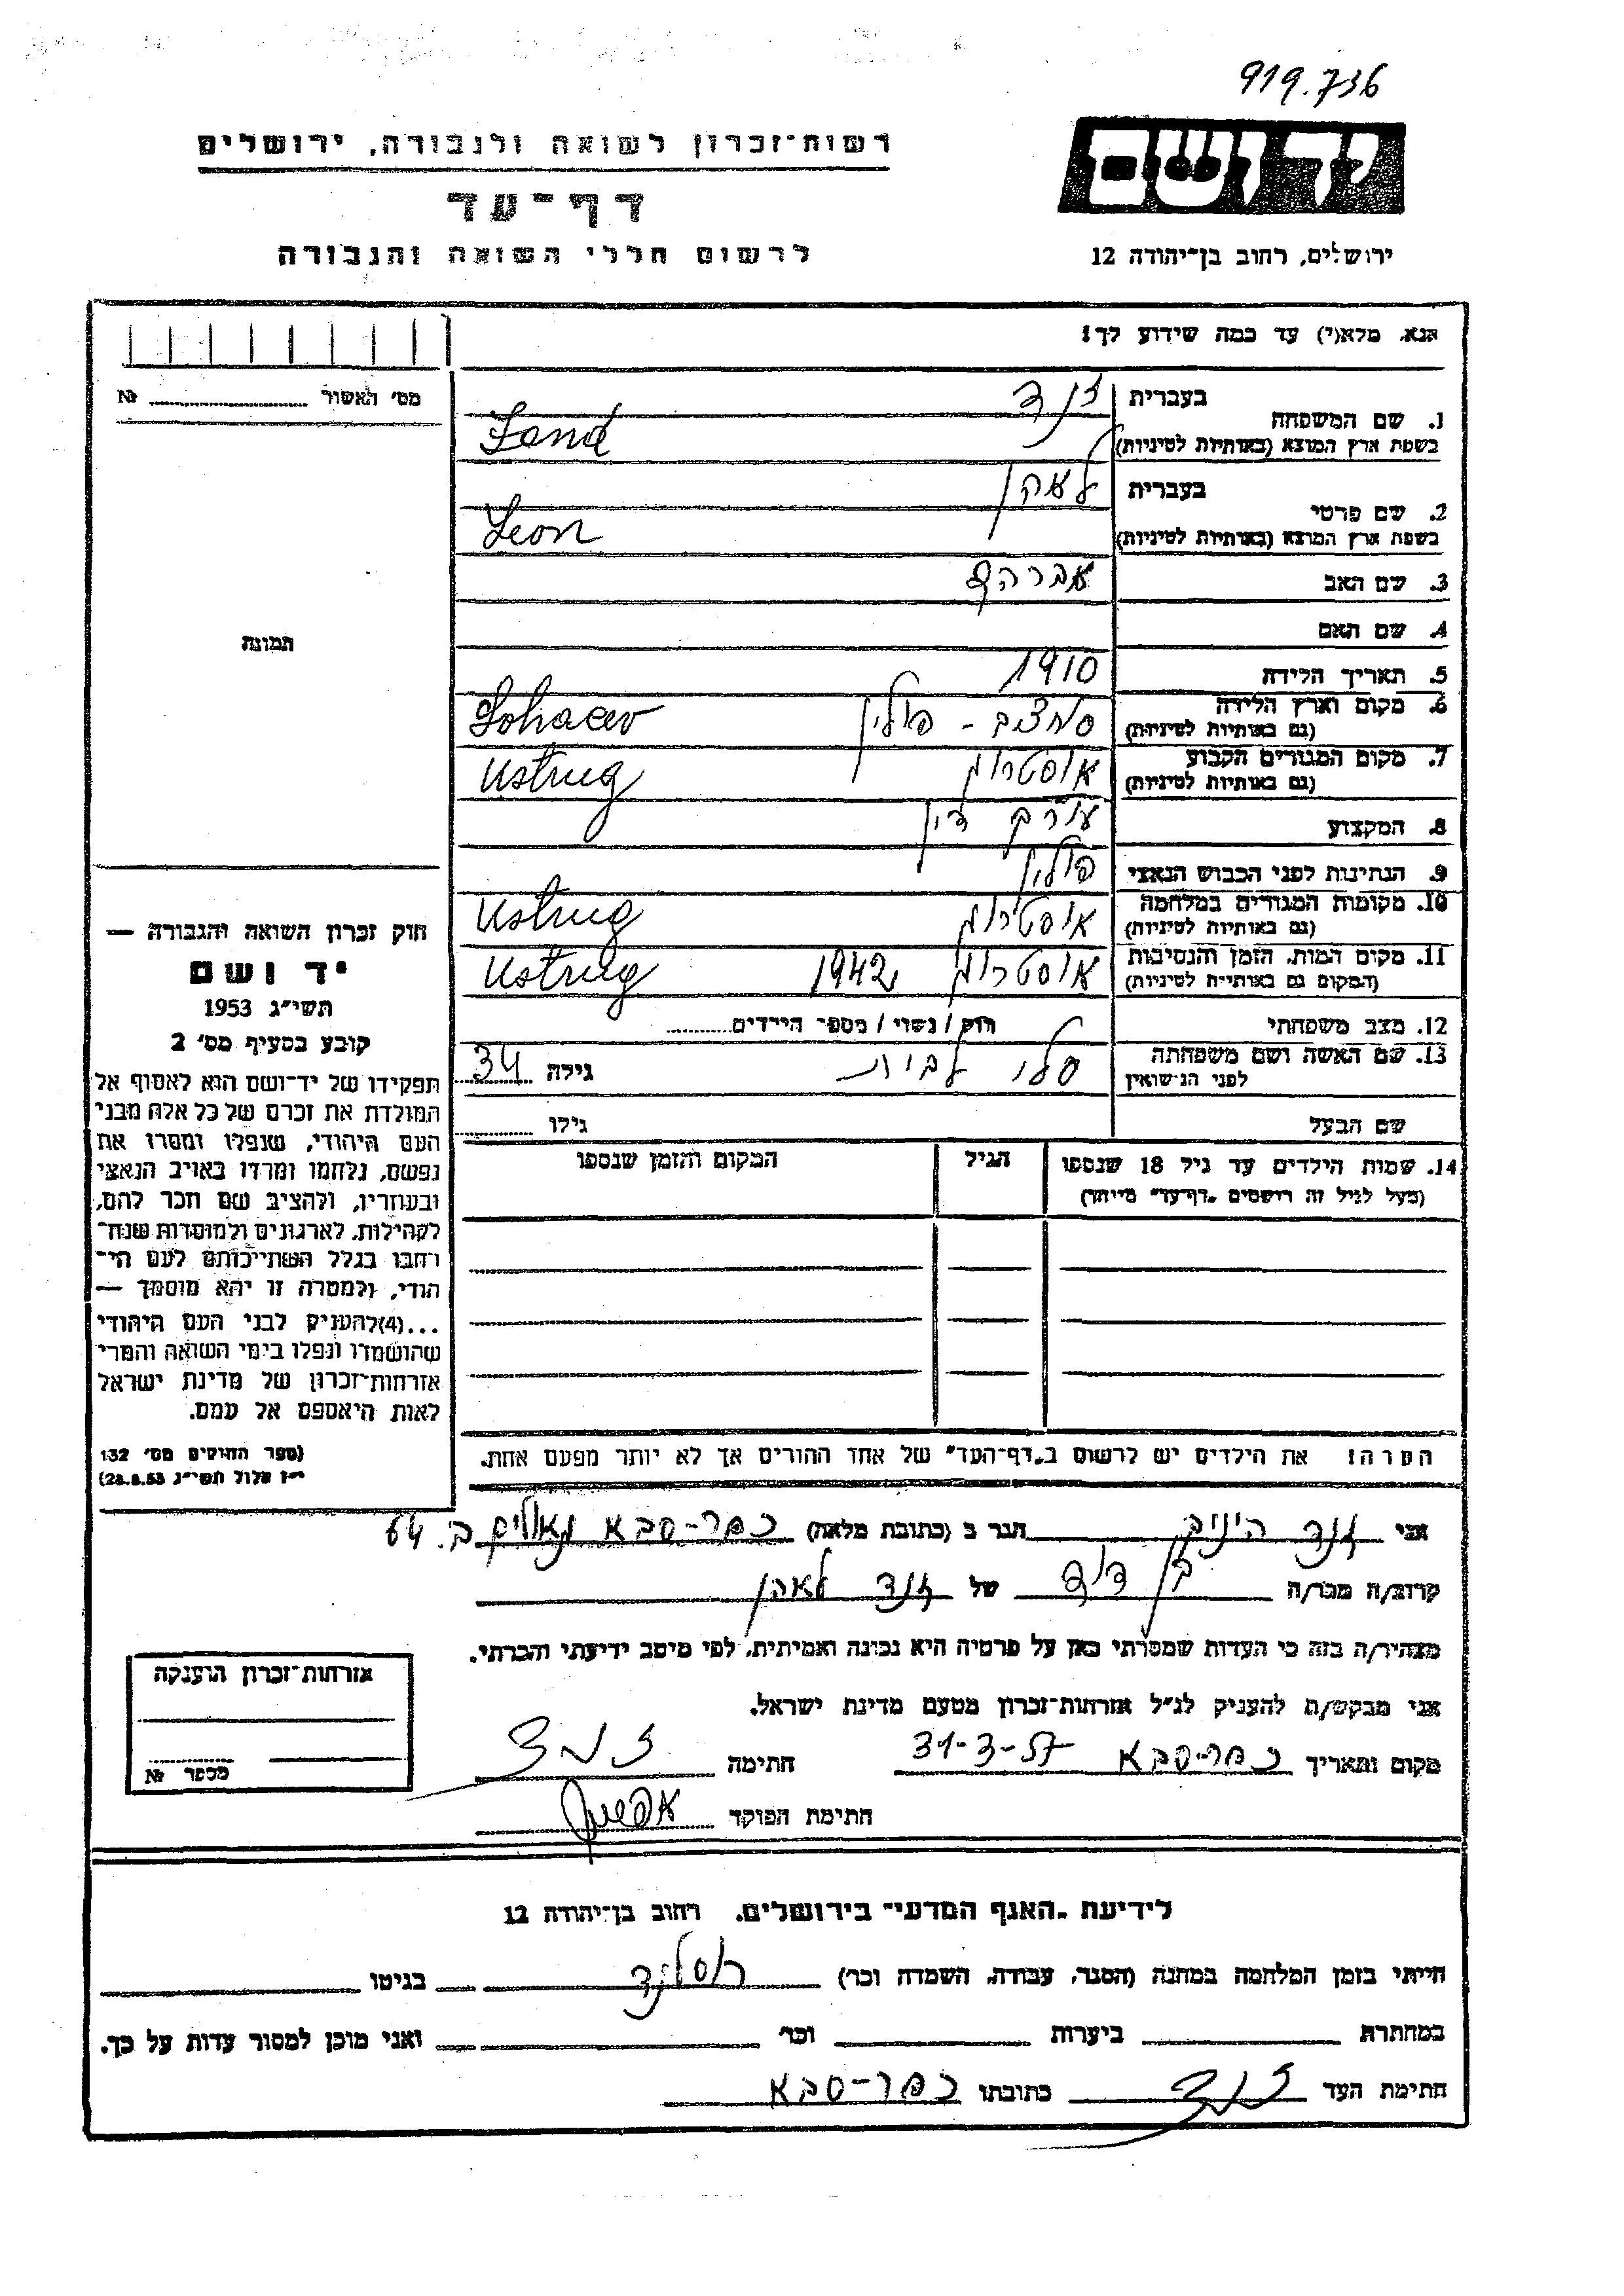 919.736
יד ושם
רשות־זכרון לשואה ולגבורה, ירושלים
דף־עד
לרשום חללי השואה והגבורה
ירושלים, רחוב בן־יהודה 12
אנא, מלא(י) עד כמה שידוע לך!
מס׳ האשור № 
1. שם המשפחה
בעברית זנד
בשפת ארץ המוצא (באותיות לטיניות) Zand
2. שם פרטי
בעברית לאון
בשפת ארץ המוצא (באותיות לטיניות) Leon
3. שם האב אברהם
4. שם האם
5. תאריך הלידה 1910
6. מקום וארץ הלידה
(גם באותיות לטיניות) פולין
7. מקום המגורים הקבוע
(גם באותיות לטיניות) אוסטרוג Ustrug
8. המקצוע עורך דין
9. הנתינות לפני הכבוש הנאצי פולין
10. מקומות המגורים במלחמה
(גם באותיות לטיניות) אוסטרוג Ustrug
11. מקום המות, הזמן והנסיבות
(המקום גם באותיות לטיניות) אוסטרוג 1942 Ustrug
12. מצב משפחתי רוק / נשוי / מספר הילדים
13. שם האשה ושם משפחתה
לפני הנישואין גילה 34
שם הבעל גילו
14. שמות הילדים עד גיל 18 שנספו הגיל המקום והזמן שנספו
(מעל לגיל זה רושמים „דף־עד״ מיוחד)
הערה: את הילדים יש לרשום ב„דף־העד״ של אחד ההורים אך לא יותר מפעם אחת.
תמונה
חוק זכרון השואה והגבורה —
יד ושם
תשי״ג 1953
קובע בסעיף מס׳ 2
תפקידו של יד־ושם הוא לאסוף אל
המולדת את זכרם של כל אלה מבני
העם היהודי, שנפלו ומסרו את
נפשם, נלחמו ומרדו באויב הנאצי
ובעוזריו, ולהציב שם וזכר להם,
לקהילות, לארגונים ולמוסדות שנח־
רבו בגלל השתייכותם לעם הי־
הודי, ולמטרה זו יהא מוסמך —
...(4)להעניק לבני העם היהודי
שהושמדו ונפלו בימי השואה והמרי
אזרחות־זכרון של מדינת ישראל
לאות היאספם אל עמם.
(ספר החוקים מס׳ 132
י״ז אלול תשי״ג 28.8.53)
אני זנד הגר ב (כתובת מלאה) כפר-סבא 64
קרוב/ה מכר/ה בן דוד של זנד לאון
מצהיר/ה בזה כי העדות שמסרתי כאן על פרטיה היא נכונה ואמיתית, לפי מיטב ידיעתי והכרתי.
אני מבקש/ת להעניק לנ״ל אזרחות־זכרון מטעם מדינת ישראל.
מקום ותאריך כפר-סבא 31-3-57 חתימה זנד
חתימת הפוקד
אזרחות־זכרון הוענקה
מספר №
לידיעת „האגף המדעי״ בירושלים, רחוב בן־יהודה 12
הייתי בזמן המלחמה במחנה (הסגר, עבודה, השמדה וכו׳) בגיטו
במחתרת ביערות וכו׳ ואני מוכן למסור עדות על כך.
חתימת העד זנד כתובתו כפר-סבא